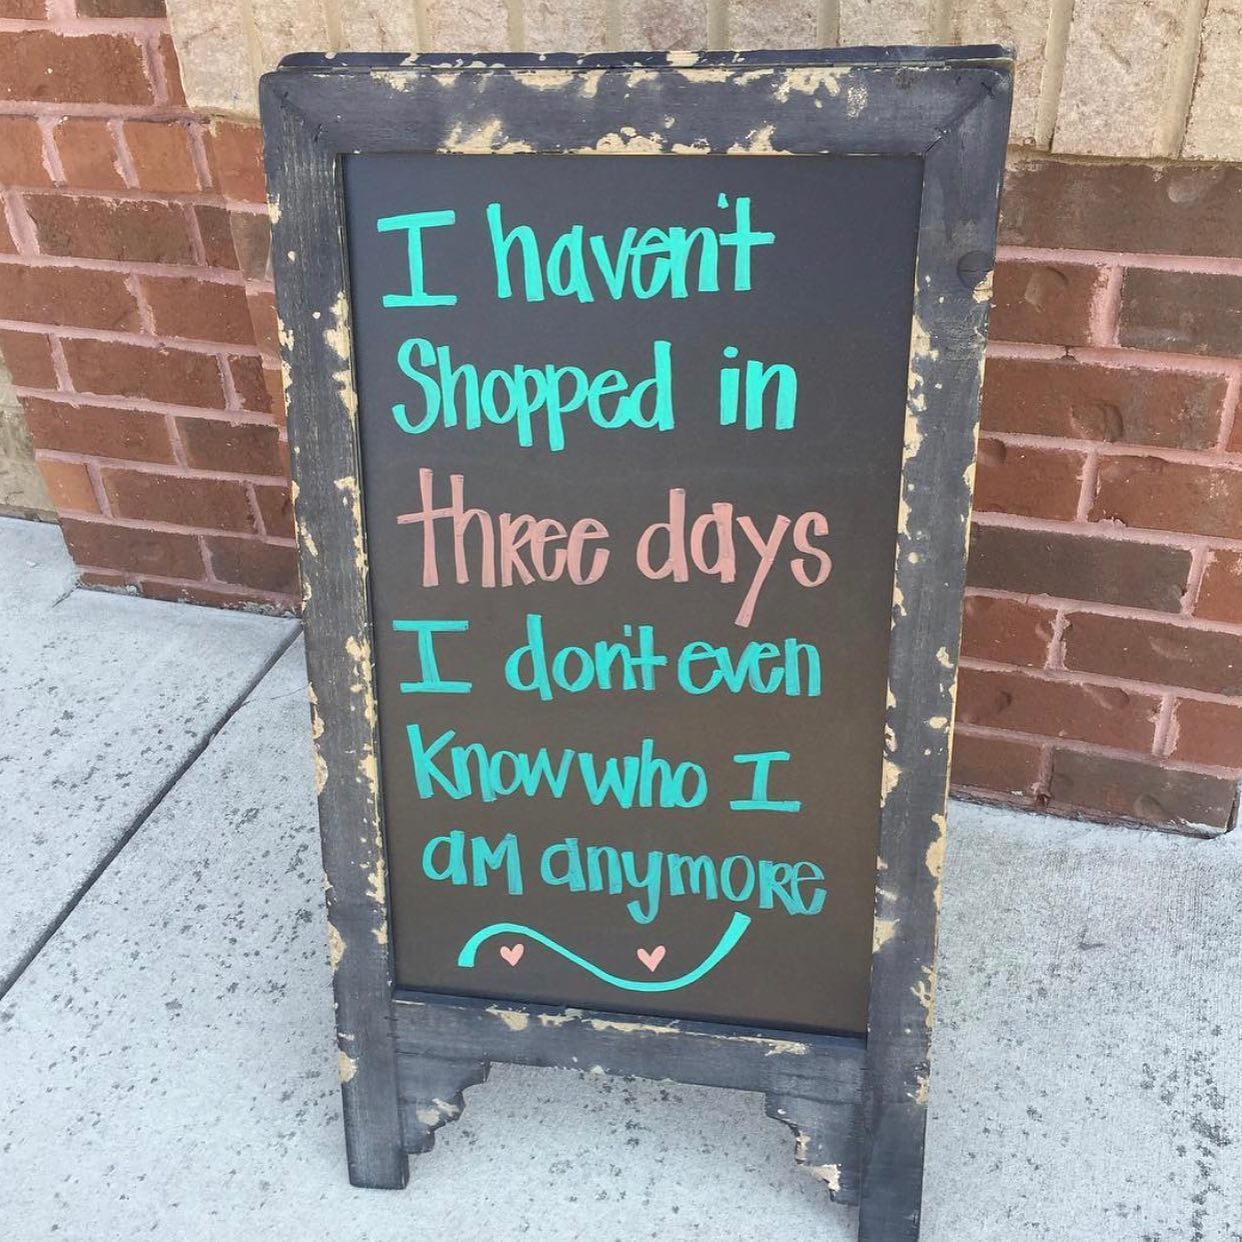 I haven't
Shopped in
three days
I don't even
know who I
am anymore